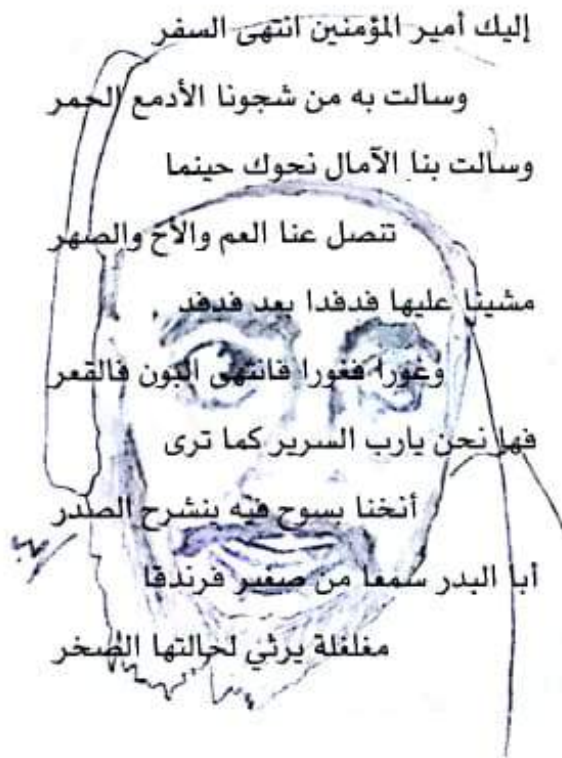 إليك أمير المؤمنين انتهى السفر
وسالت به من شجونا الأدمع الحمر
وسالت بنا الآمال نحوك حينما
تنصل عنا العم والأخ والصهر
مشينا عليها فدفدا بعد فدفد
وغورا فغورا فانتهى البون فالقعر
فها نحن يارب السرير كما ترى
أنخنا بسوح فيه ينشرح الصدر
أبا البدر سمعا من صغير فرندقا
مغلغلة يرثي لحالتها الصخر